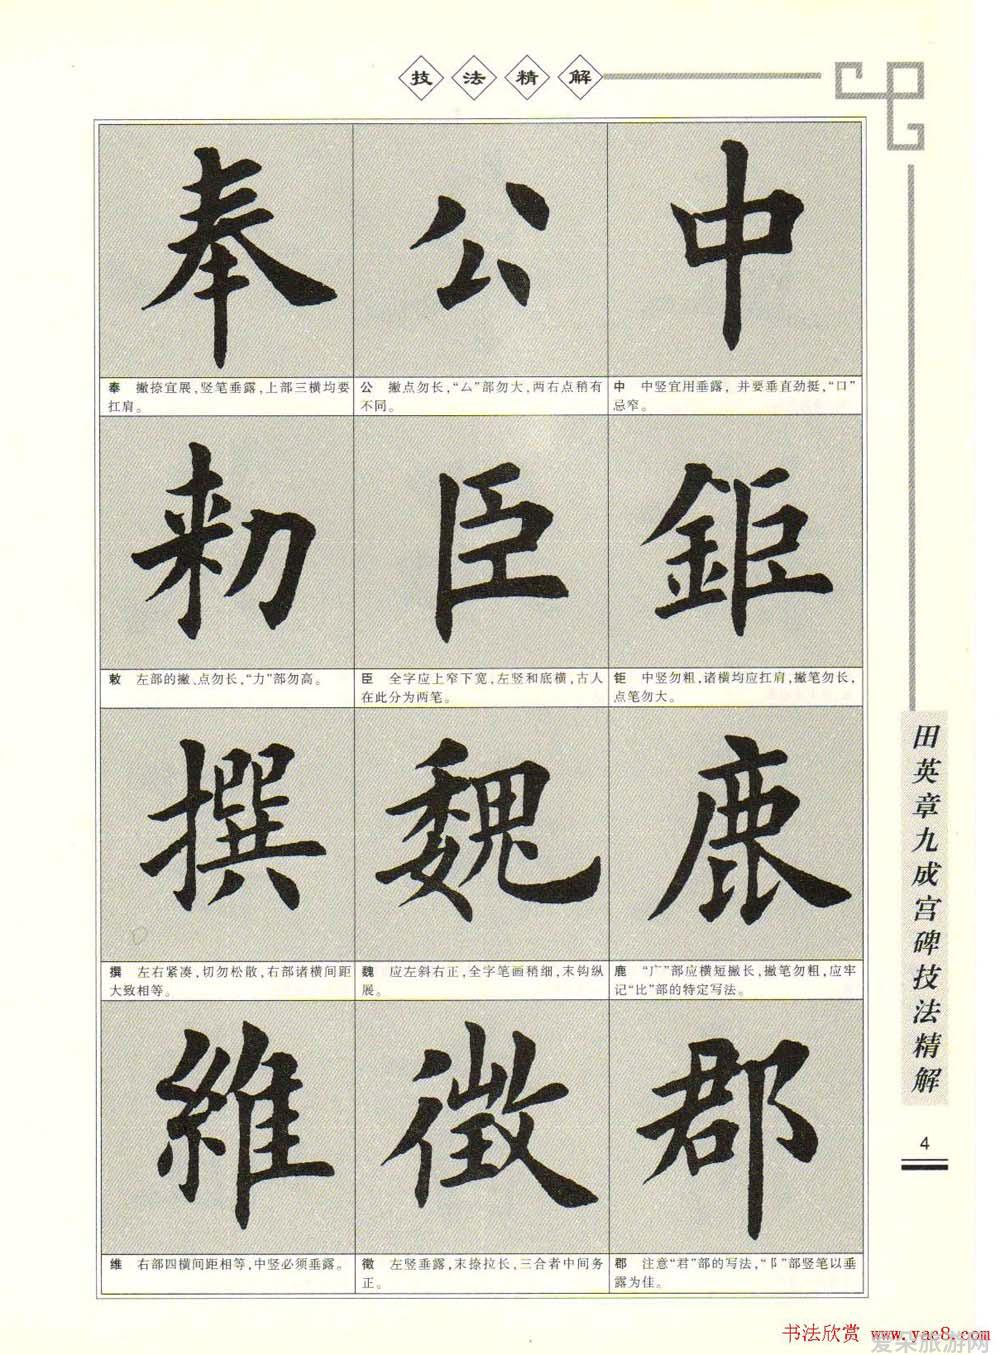 技法精解
奉 公 中
奉 撇捺宜展，竖笔垂露，上部三横均要
扛肩。
公 撇点勿长，“厶”部勿大，两右点稍有
不同。
中 中竖宜用垂露，并要垂直劲挺，“口”
忌窄。
勑 臣 鉅
敕 左部的撇、点勿长，“力”部勿高。
臣 全字应上窄下宽，左竖和底横，古人
在此分为两笔。
钜 中竖勿粗，诸横均应扛肩，撇笔勿长，
点笔勿大。
撰 魏 鹿
撰 左右紧凑，切勿松散，右部诸横间距
大致相等。
魏 应左斜右正，全字笔画稍细，末钩纵
展。
鹿 “广”部应横短撇长，撇笔勿粗，应牢
记“比”部的特定写法。
維 徵 郡
维 右部四横间距相等，中竖必须垂露。
徵 左竖垂露，末捺拉长，三合者中间务
正。
郡 注意“君”部的写法，“阝”部竖笔以垂
露为佳。
田英章九成宫碑技法精解
4
书法欣赏 www.yac8.com
爱呆旅游网